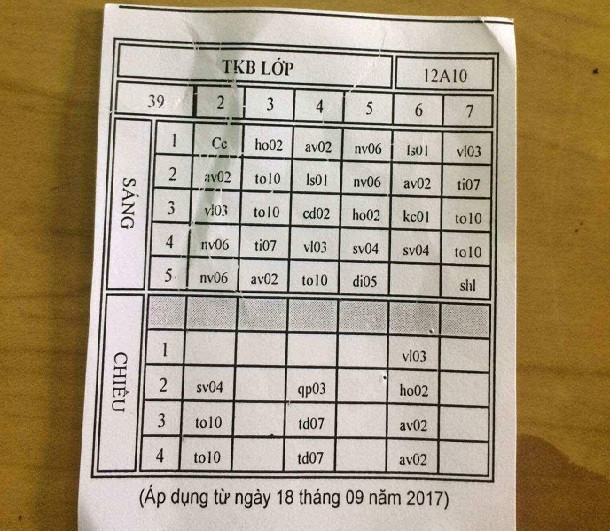 TKB LỚP 12A10
39 2 3 4 5 6 7
SÁNG
1 Cc ho02 av02 nv06 ls01 vl03
2 av02 to10 ls01 nv06 av02 ti07
3 vl03 to10 cd02 ho02 kc01 to10
4 nv06 ti07 vl03 sv04 sv04 to10
5 nv06 av02 to10 di05 shl
CHIỀU
1 vl03
2 sv04 qp03 ho02
3 to10 td07 av02
4 to10 td07 av02
(Áp dụng từ ngày 18 tháng 09 năm 2017)